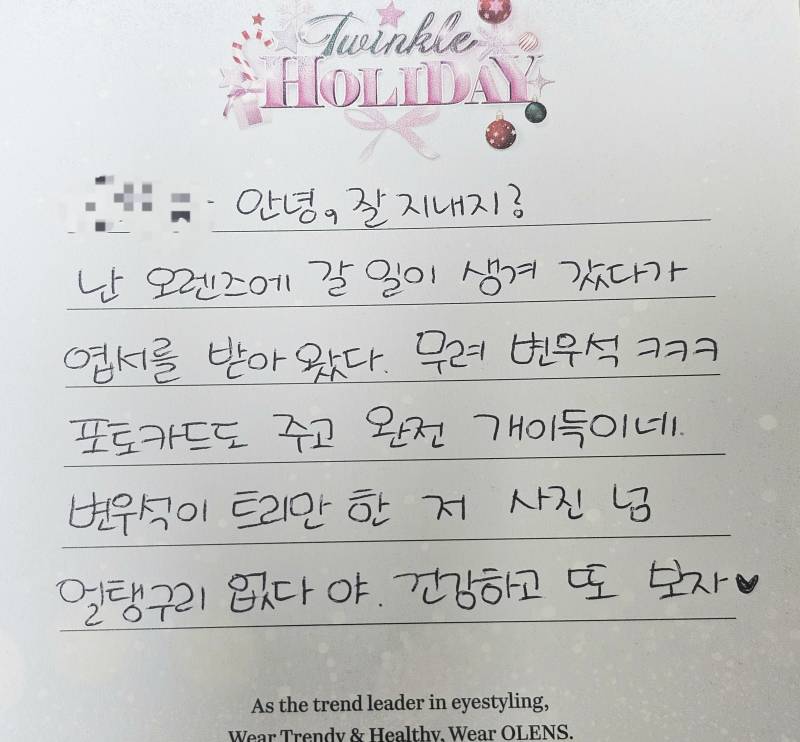 Twinkle
HOLIDAY
안녕, 잘 지내지?
난 오렌즈에 갈 일이 생겨 갔다가
엽서를 받아 왔다. 무려 변우석 ㅋㅋㅋ
포토카드도 주고 완전 개이득이네.
변우석이 트리만 한 저 사진 넘
얼탱구리 없다 야. 건강하고 또 보자♥
As the trend leader in eyestyling,
Wear Trendy & Healthy, Wear OLENS.